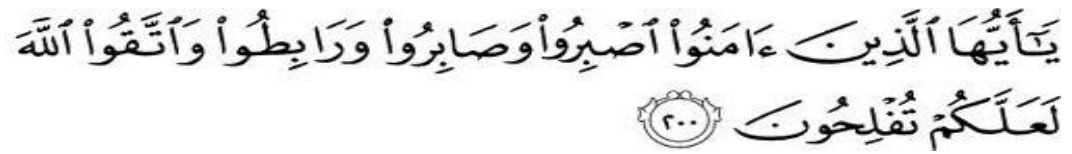 يَٰٓأَيُّهَا ٱلَّذِينَ ءَامَنُوا۟ ٱصْبِرُوا۟ وَصَابِرُوا۟ وَرَابِطُوا۟ وَٱتَّقُوا۟ ٱللَّهَ
لَعَلَّكُمْ تُفْلِحُونَ ٢٠٠